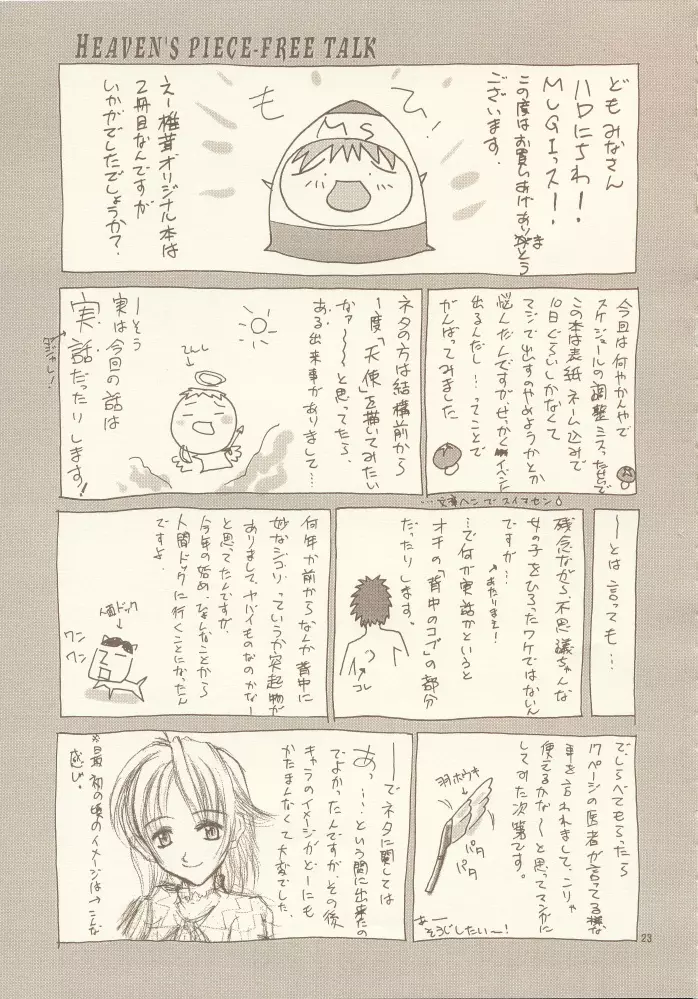 HEAVEN'S PIECE-FREE TALK
どもみなさん
ハロにちわー!
MUGIっスー!
この度はお買いあげありがとう
ございます。
ひ!
も
MS
えー椎茸オリジナル本は
2冊目なんですが
いかがでしたでしょうか?
今回は何やかんやで
スケジュールの調整ミスったせいで
この本は表紙、ネーム込みで
10日ぐらいしかなくて
マジで出すのやめようかとか
悩んだんですがせっかくイベント
出るんだし…ってことで
がんばってみました
…文章ヘンでスイマセン
ネタの方は結構前から
1度「天使」を描いてみたい
なァ〜〜と思ってたら、
ある出来事がありまして…
てんし
ーそう
実は今回の話は
実話だったりします!
ダジャレ!
ーとは言っても…
残念ながら、不思議ちゃんな
女の子をひろったワケではないん
ですが…
あたりまえ!
…で何が実話かというと
オチの「背中のコブ」の部分
だったりします。
コレ
何年か前からなんか背中に
妙なシコリっていうか突起物が
ありまして、ヤバイものなのかなー
と思ってたんですが、
今年の始め、ひょんなことから
人間ドックに行くことになったん
ですよ。
人面ドック
ワン
ワン
でしらべてもらったら
17ページの医者が言ってる様な
事を言われまして、こりゃ
使えるかな〜と思ってマンガに
してみた次第です。
羽ホウキ
パタ
パタ
あー
そうじしたい〜!
ーでネタに関しては
あっ…という間に出来たの
でよかったんですが、その後
キャラのイメージがどーにも
かたまんなくて大変でした。
*最初の頃のイメージは→こんな
感じ。
23